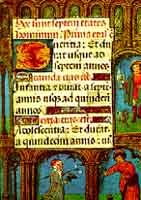 sunt septem etates
hominum Prima
Et du
rat usque ad
septem annos
Secunda etas est
Infantia et durat a septe
annis usq3 ad quindeci
annos
etas est
Adolescentia: Et durat
a quindecim annis us